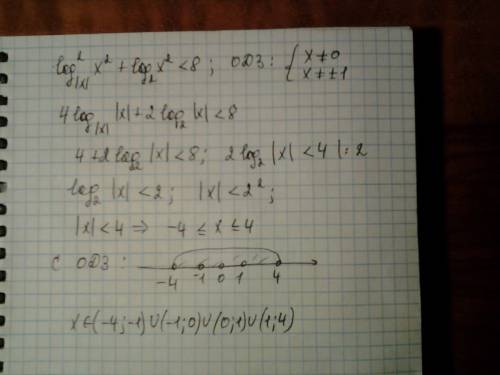 log²_|x| x² + log₂ x² < 8 ; ОДЗ: { x ≠ 0
x ≠ ±1
4 log_|x| |x| + 2 log₂ |x| < 8
4 + 2 log₂ |x| < 8 ; 2 log₂ |x| < 4 | : 2
log₂ |x| < 2 ; |x| < 2² ;
|x| < 4 ⇒ -4 ≤ x ≤ 4
С ОДЗ :
-4 -1 0 1 4
x ∈ (-4;-1)∪(-1;0)∪(0;1)∪(1;4)